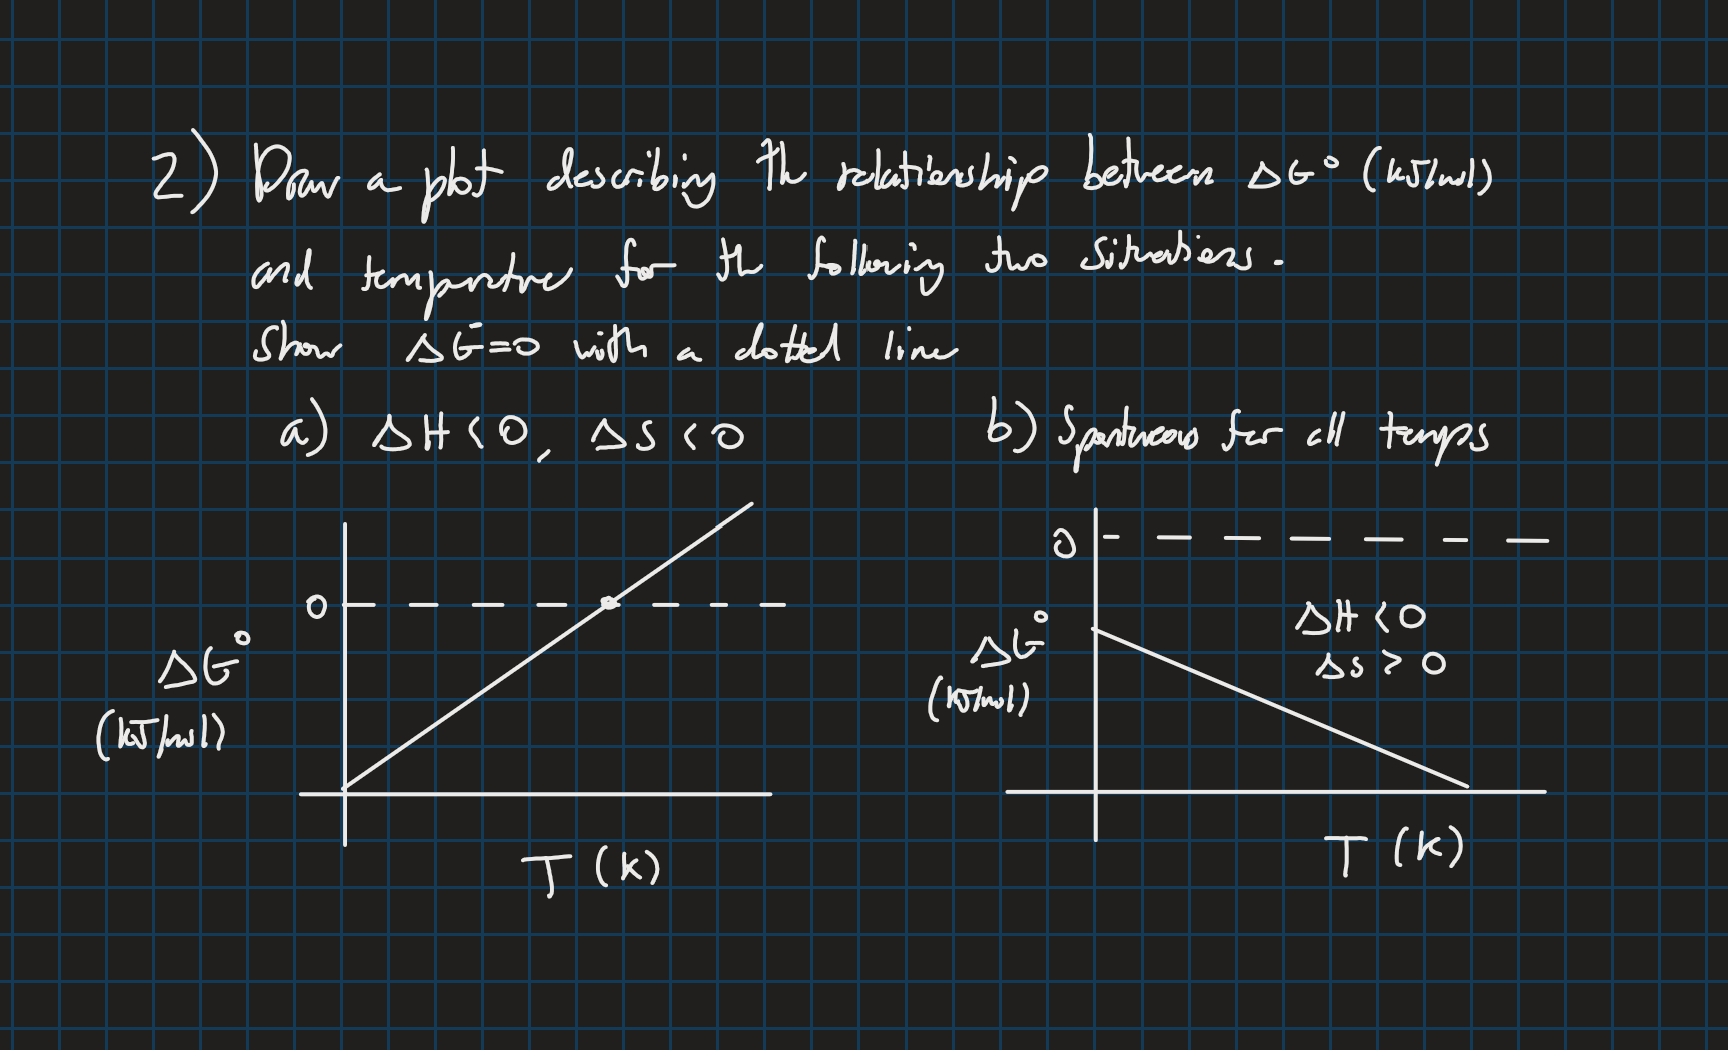 2) Draw a plot describing the relationship between ΔG° (kJ/mol)
and temperature for the following two situations.
Show ΔG=0 with a dotted line
a) ΔH<0, ΔS<0
b) Spontaneous for all temps
0
ΔG°
(kJ/mol)
T (K)
0
ΔG°
(kJ/mol)
ΔH<0
ΔS>0
T (K)